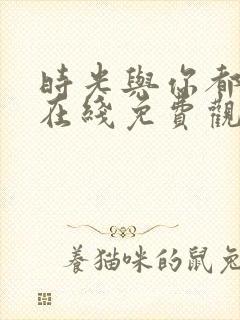 時光與你都
在綫免費觀
養猫咪的鼠兔